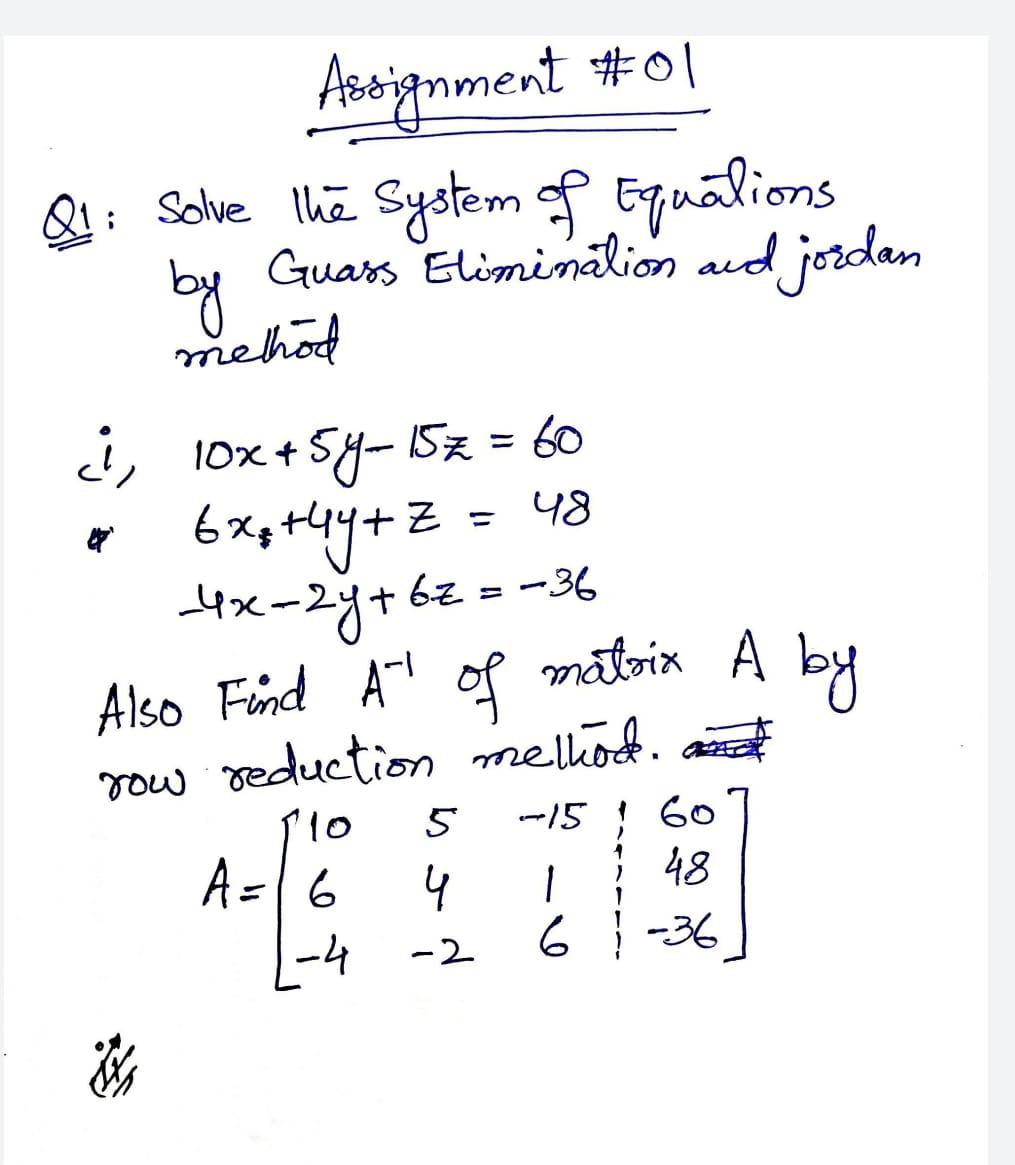 Assignment #01
Q1: Solve the System of Equations
by Guass Elimination and jordan
method
i, 10x + 5y - 15z = 60
6x + 4y + z = 48
-4x - 2y + 6z = -36
Also Find A⁻¹ of matrix A by
row reduction method.
A = [10 5 -15 ¦ 60
6 4 1 ¦ 48
-4 -2 6 ¦ -36]